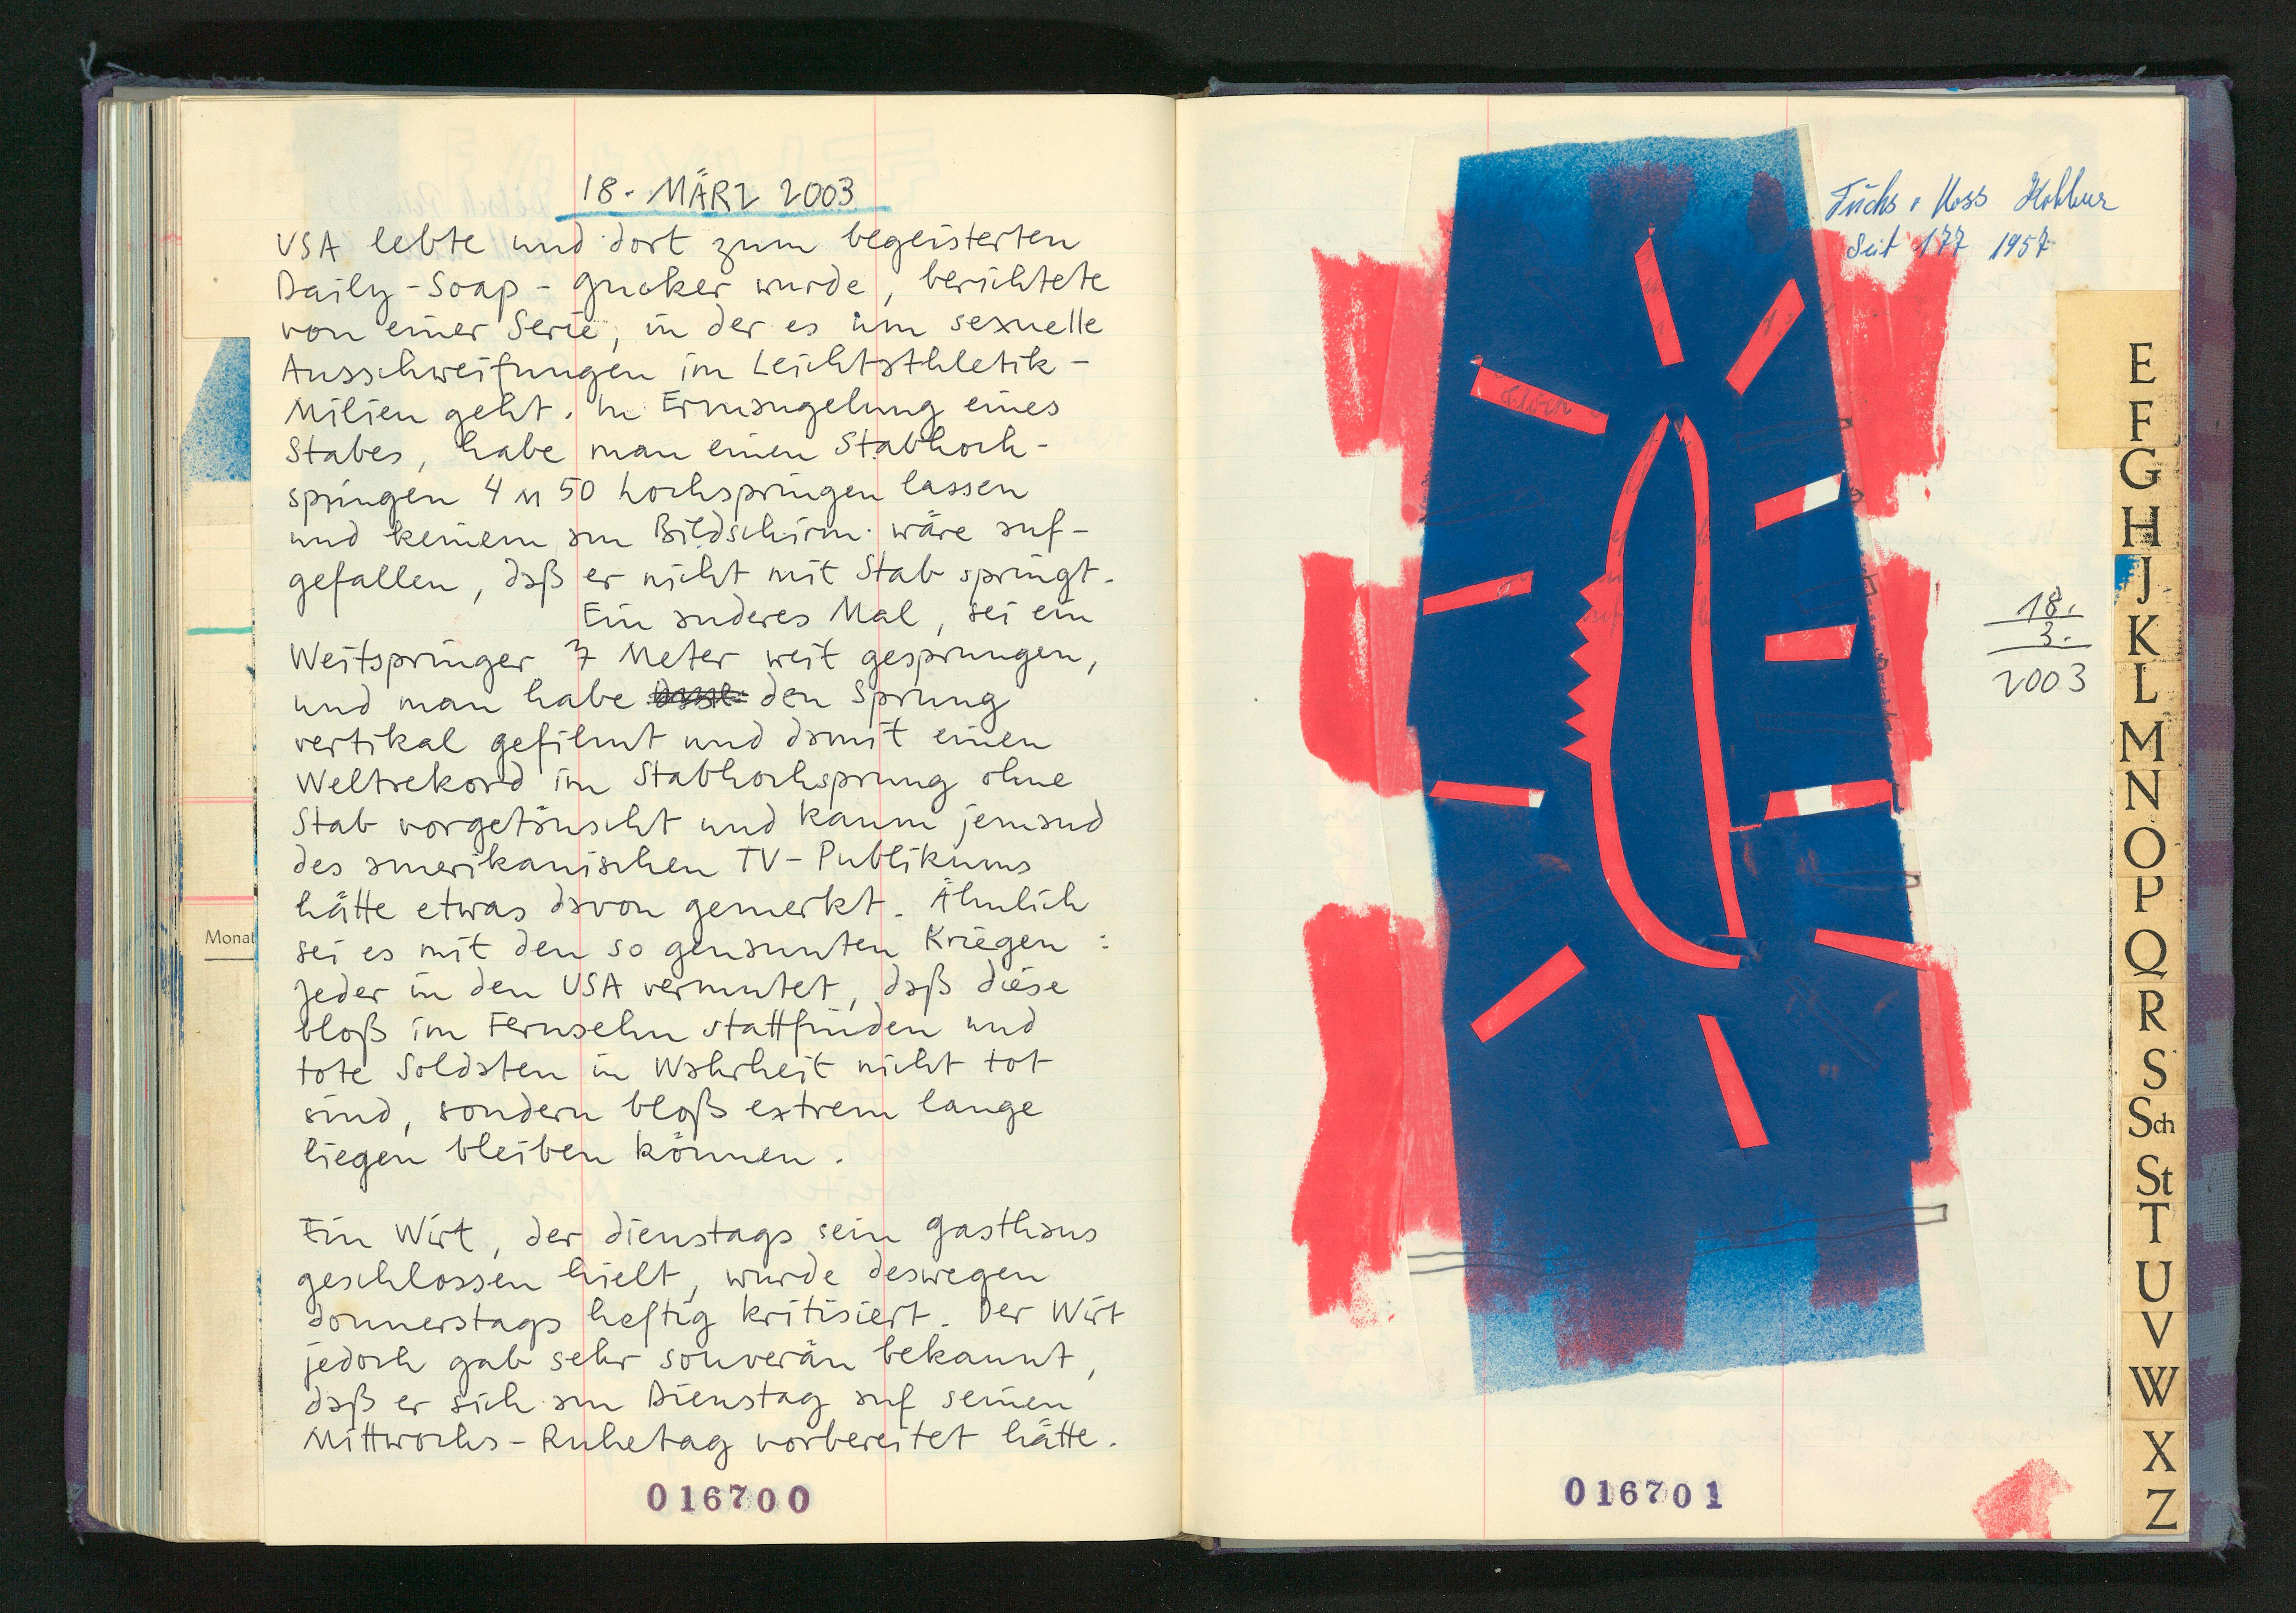 18. MÄRZ 2003
USA lebte und dort zum begeisterten
Daily-Soap-Gucker wurde, berichtete
von einer Serie, in der es um sexuelle
Ausschweifungen im Leichtathletik-
Milieu geht. In Ermangelung eines
Stabes, habe man einen Stabhoch-
springen 4 M 50 hochspringen lassen
und keinem am Bildschirm wäre auf-
gefallen, daß er nicht mit Stab springt.
Ein anderes Mal, sei ein
Weitspringer 7 Meter weit gesprungen,
und man habe den Sprung
vertikal gefilmt und damit einen
Weltrekord im Stabhochsprung ohne
Stab vorgetäuscht und kaum jemand
des amerikanischen TV-Publikums
hätte etwas davon gemerkt. Ähnlich
sei es mit den so genannten Kriegen:
jeder in den USA vermutet, daß diese
bloß im Fernsehn stattfinden und
tote Soldaten in Wahrheit nicht tot
sind, sondern bloß extrem lange
liegen bleiben können.
Ein Wirt, der dienstags sein Gasthaus
geschlossen hielt, wurde deswegen
donnerstags heftig kritisiert. Der Wirt
jedoch gab sehr souverän bekannt,
daß er sich am Dienstag auf seinen
Mittwochs-Ruhetag vorbereitet hätte.
016700
Monat
Fuchs
Seit 177 1957
18.
3.
2003
016701
E
F
G
H
J
K
L
M
N
O
P
Q
R
S
Sch
St
T
U
V
W
X
Z